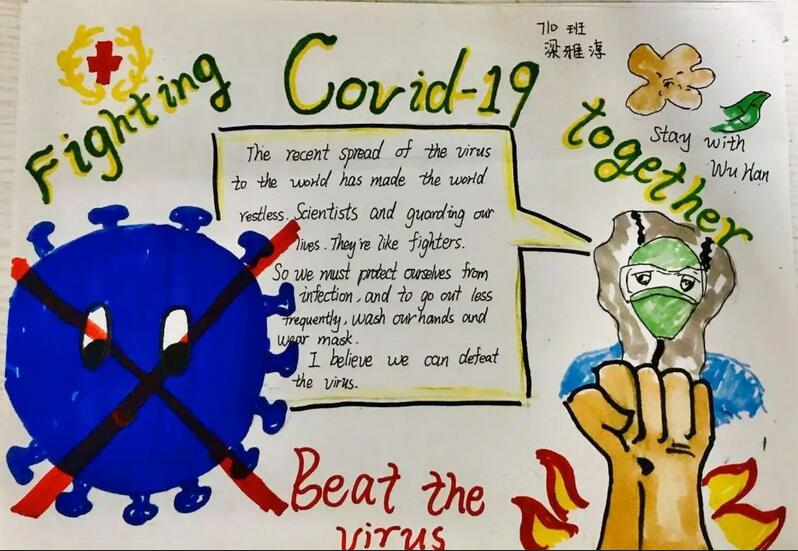 Fighting
Covid-19
together
710 班
梁雅淳
Stay with
Wu Han
The recent spread of the virus
to the world has made the world
restless. Scientists and guarding our
lives. They're like fighters.
So we must protect ourselves from
infection, and to go out less
frequently, wash our hands and
wear mask.
I believe we can defeat
the virus.
Beat the
virus